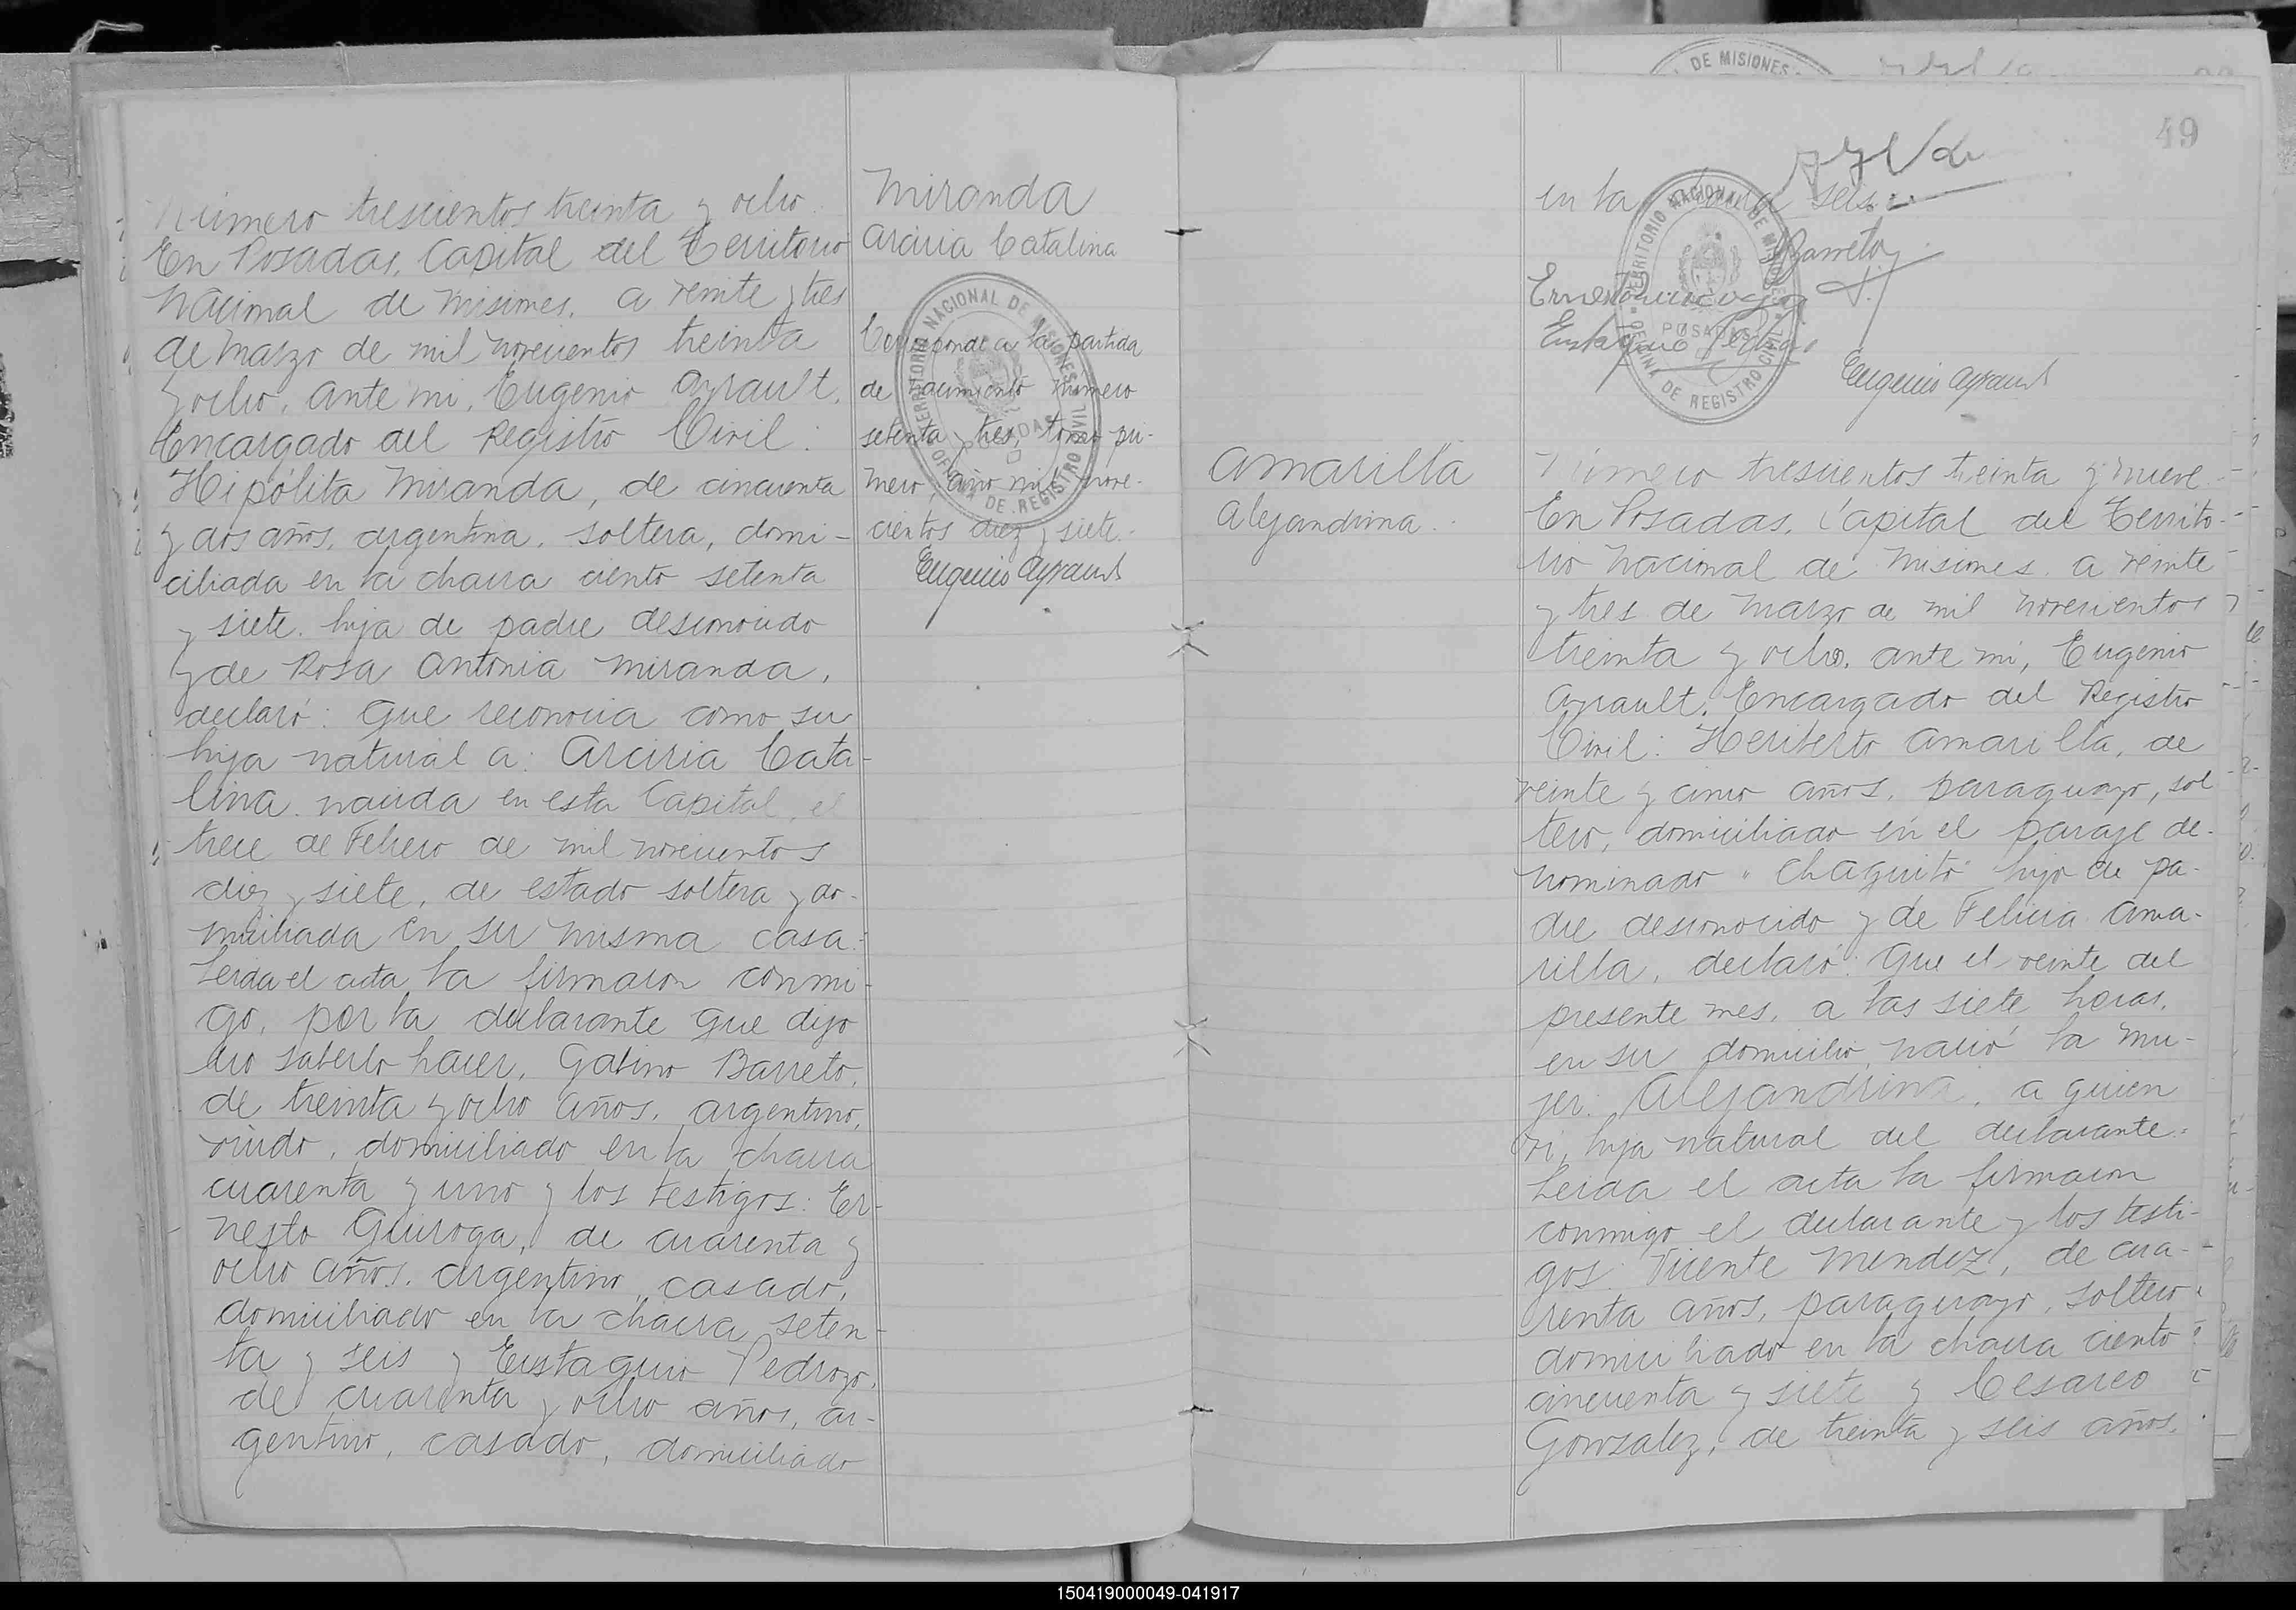 Número trescientos treinta y ocho
En Posadas, Capital del Territorio
Nacional de Misiones, a veinte y tres
de Marzo de mil novecientos treinta
y ocho, ante mi, Eugenio Ayrault,
Encargado del Registro Civil:
Hipólita Miranda, de cincuenta
y dos años, argentina, soltera, domi-
ciliada en la chacra ciento setenta
y siete, hija de padre desconocido
y de Rosa Antonia Miranda,
declaró: Que reconocia como su
hija natural a: Arciria Cata-
lina, nacida en esta Capital, el
trece de Febrero de mil novecientos
diez y siete, de estado soltera y do-
miciliada en su misma casa:
Leida el acta la firmaron conmi-
go, por la declarante que dijo
no saberlo hacer, Gabino Barreto,
de treinta y ocho años, argentino,
viudo, domiciliado en la chacra
cuarenta y uno y los testigos: Er-
nesto Quiroga, de cuarenta y
ocho años, argentino, casado,
domiciliado en la chacra seten-
ta y seis y Eustaquio Pedrozo,
de cuarenta y ocho años, ar-
gentino, casado, domiciliado
Miranda
Arciria Catalina
Corresponde a la partida
de nacimiento número
setenta y tres, tomo pri-
mero, año mil nove-
cientos diez y siete.
Eugenio Ayrault
TERRITORIO NACIONAL DE MISIONES
POSADAS
OFICINA DE REGISTRO CIVIL
DE MISIONES
49
en la chacra seis.
Barreto
Ernesto Quiroga
Eustaquio Pedrozo
Eugenio Ayrault
TERRITORIO NACIONAL DE MISIONES
POSADAS
OFICINA DE REGISTRO CIVIL
Amarilla
Alejandrina.
Número trescientos treinta y nueve
En Posadas, Capital del Territo-
rio Nacional de Misiones, a veinte
y tres de Marzo de mil novecientos
treinta y ocho, ante mi, Eugenio
Ayrault, Encargado del Registro
Civil: Heriberto Amarilla, de
veinte y cinco años, paraguayo, sol
tero, domiciliado en el paraje de-
nominado "Chaquito" hijo de pa-
dre desconocido y de Felicia Ama-
rilla, declaró: Que el veinte del
presente mes, a las siete horas,
en su domicilio, nació la mu-
jer: Alejandrina, a quien
vi, hija natural del declarante:
Leida el acta la firmaron
conmigo el declarante y los testi-
gos: Vicente Mendez, de cua-
renta años, paraguayo, soltero,
domiciliado en la chacra ciento
cincuenta y siete y Cesareo
Gonzalez, de treinta y seis años,
150419000049-041917